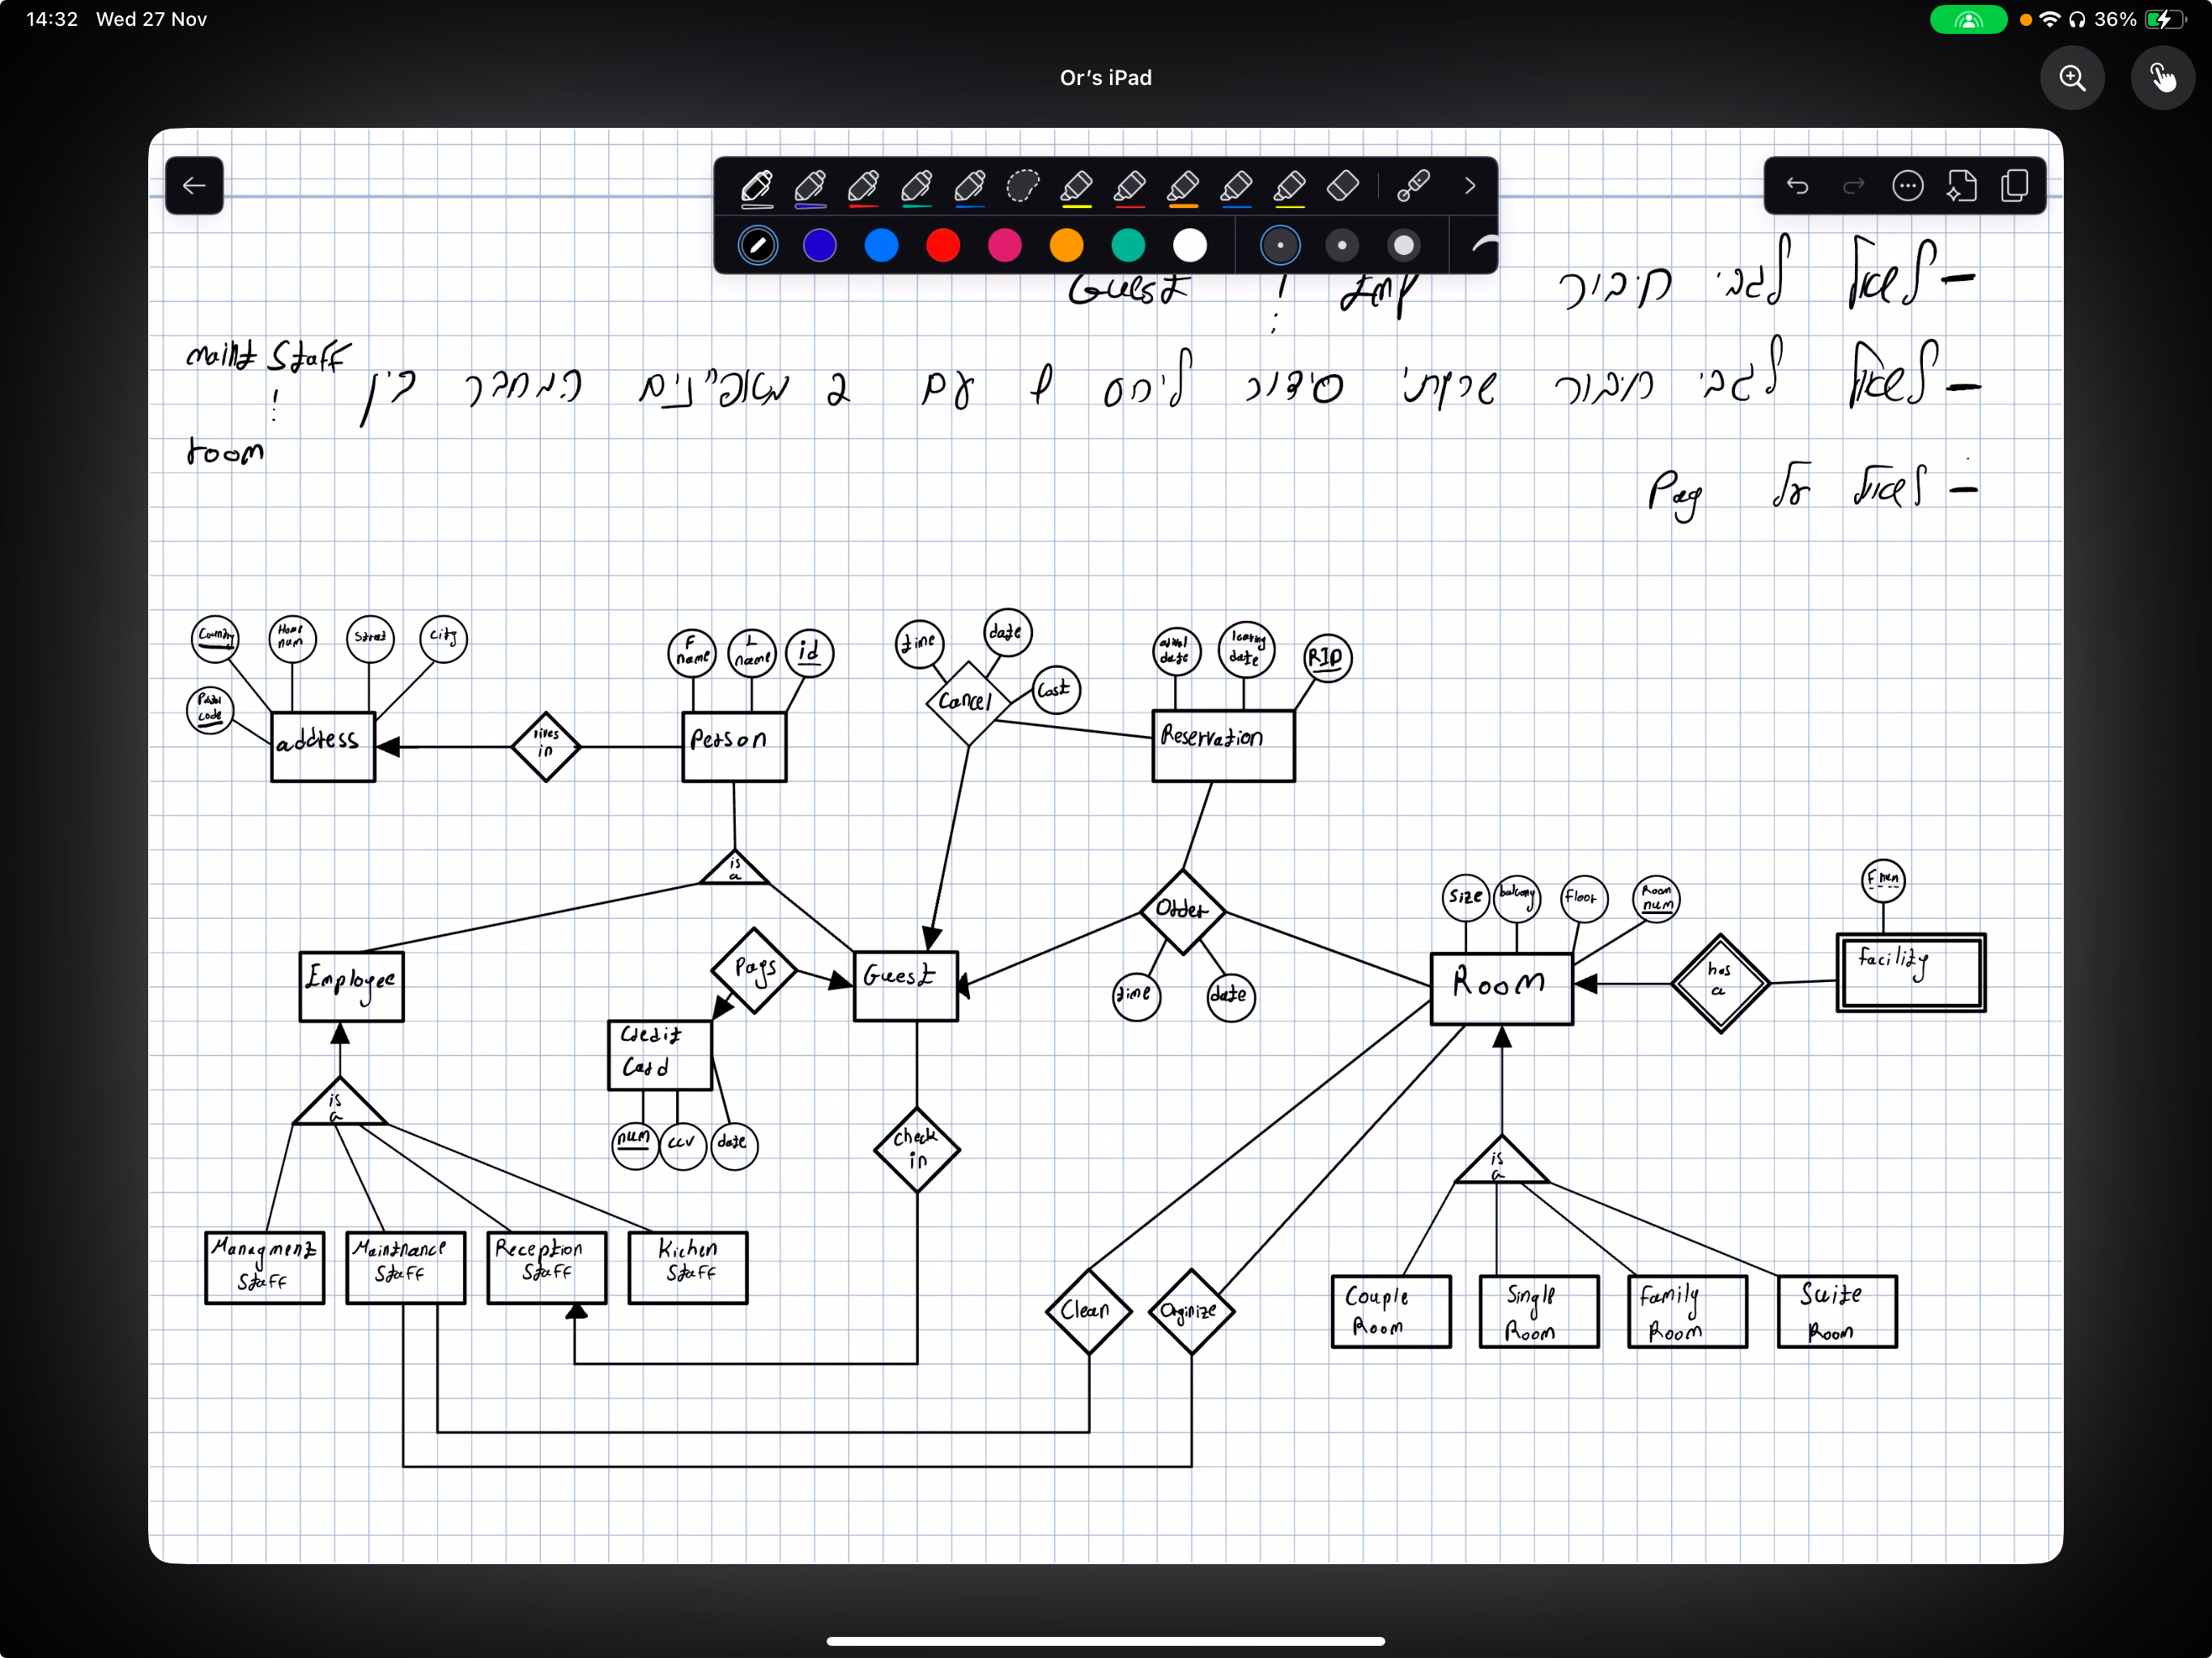 14:32 Wed 27 Nov
36%
Or's iPad
– לשאול לגבי חיבור Emp ו Guest
– לשאול לגבי חיבור שרותי סידור ליחס 1 עם 2 מאפיינים המחבר בין maint Staff
ו
room
– לשאול על Pay
Country
Home num
Street
City
Postal code
address
lives in
F name
L name
id
Person
time
date
Cost
Cancel
arival date
leaving date
RID
Reservation
is a
Order
time
date
Size
balcony
Floor
Room num
F num
Employee
Pays
Guest
Room
has a
Facility
Credit Card
num
ccv
date
is a
check in
is a
Managment Staff
Maintnance Staff
Reception Staff
Kichen Staff
Clean
Orginize
Couple Room
Single Room
Family Room
Suite Room